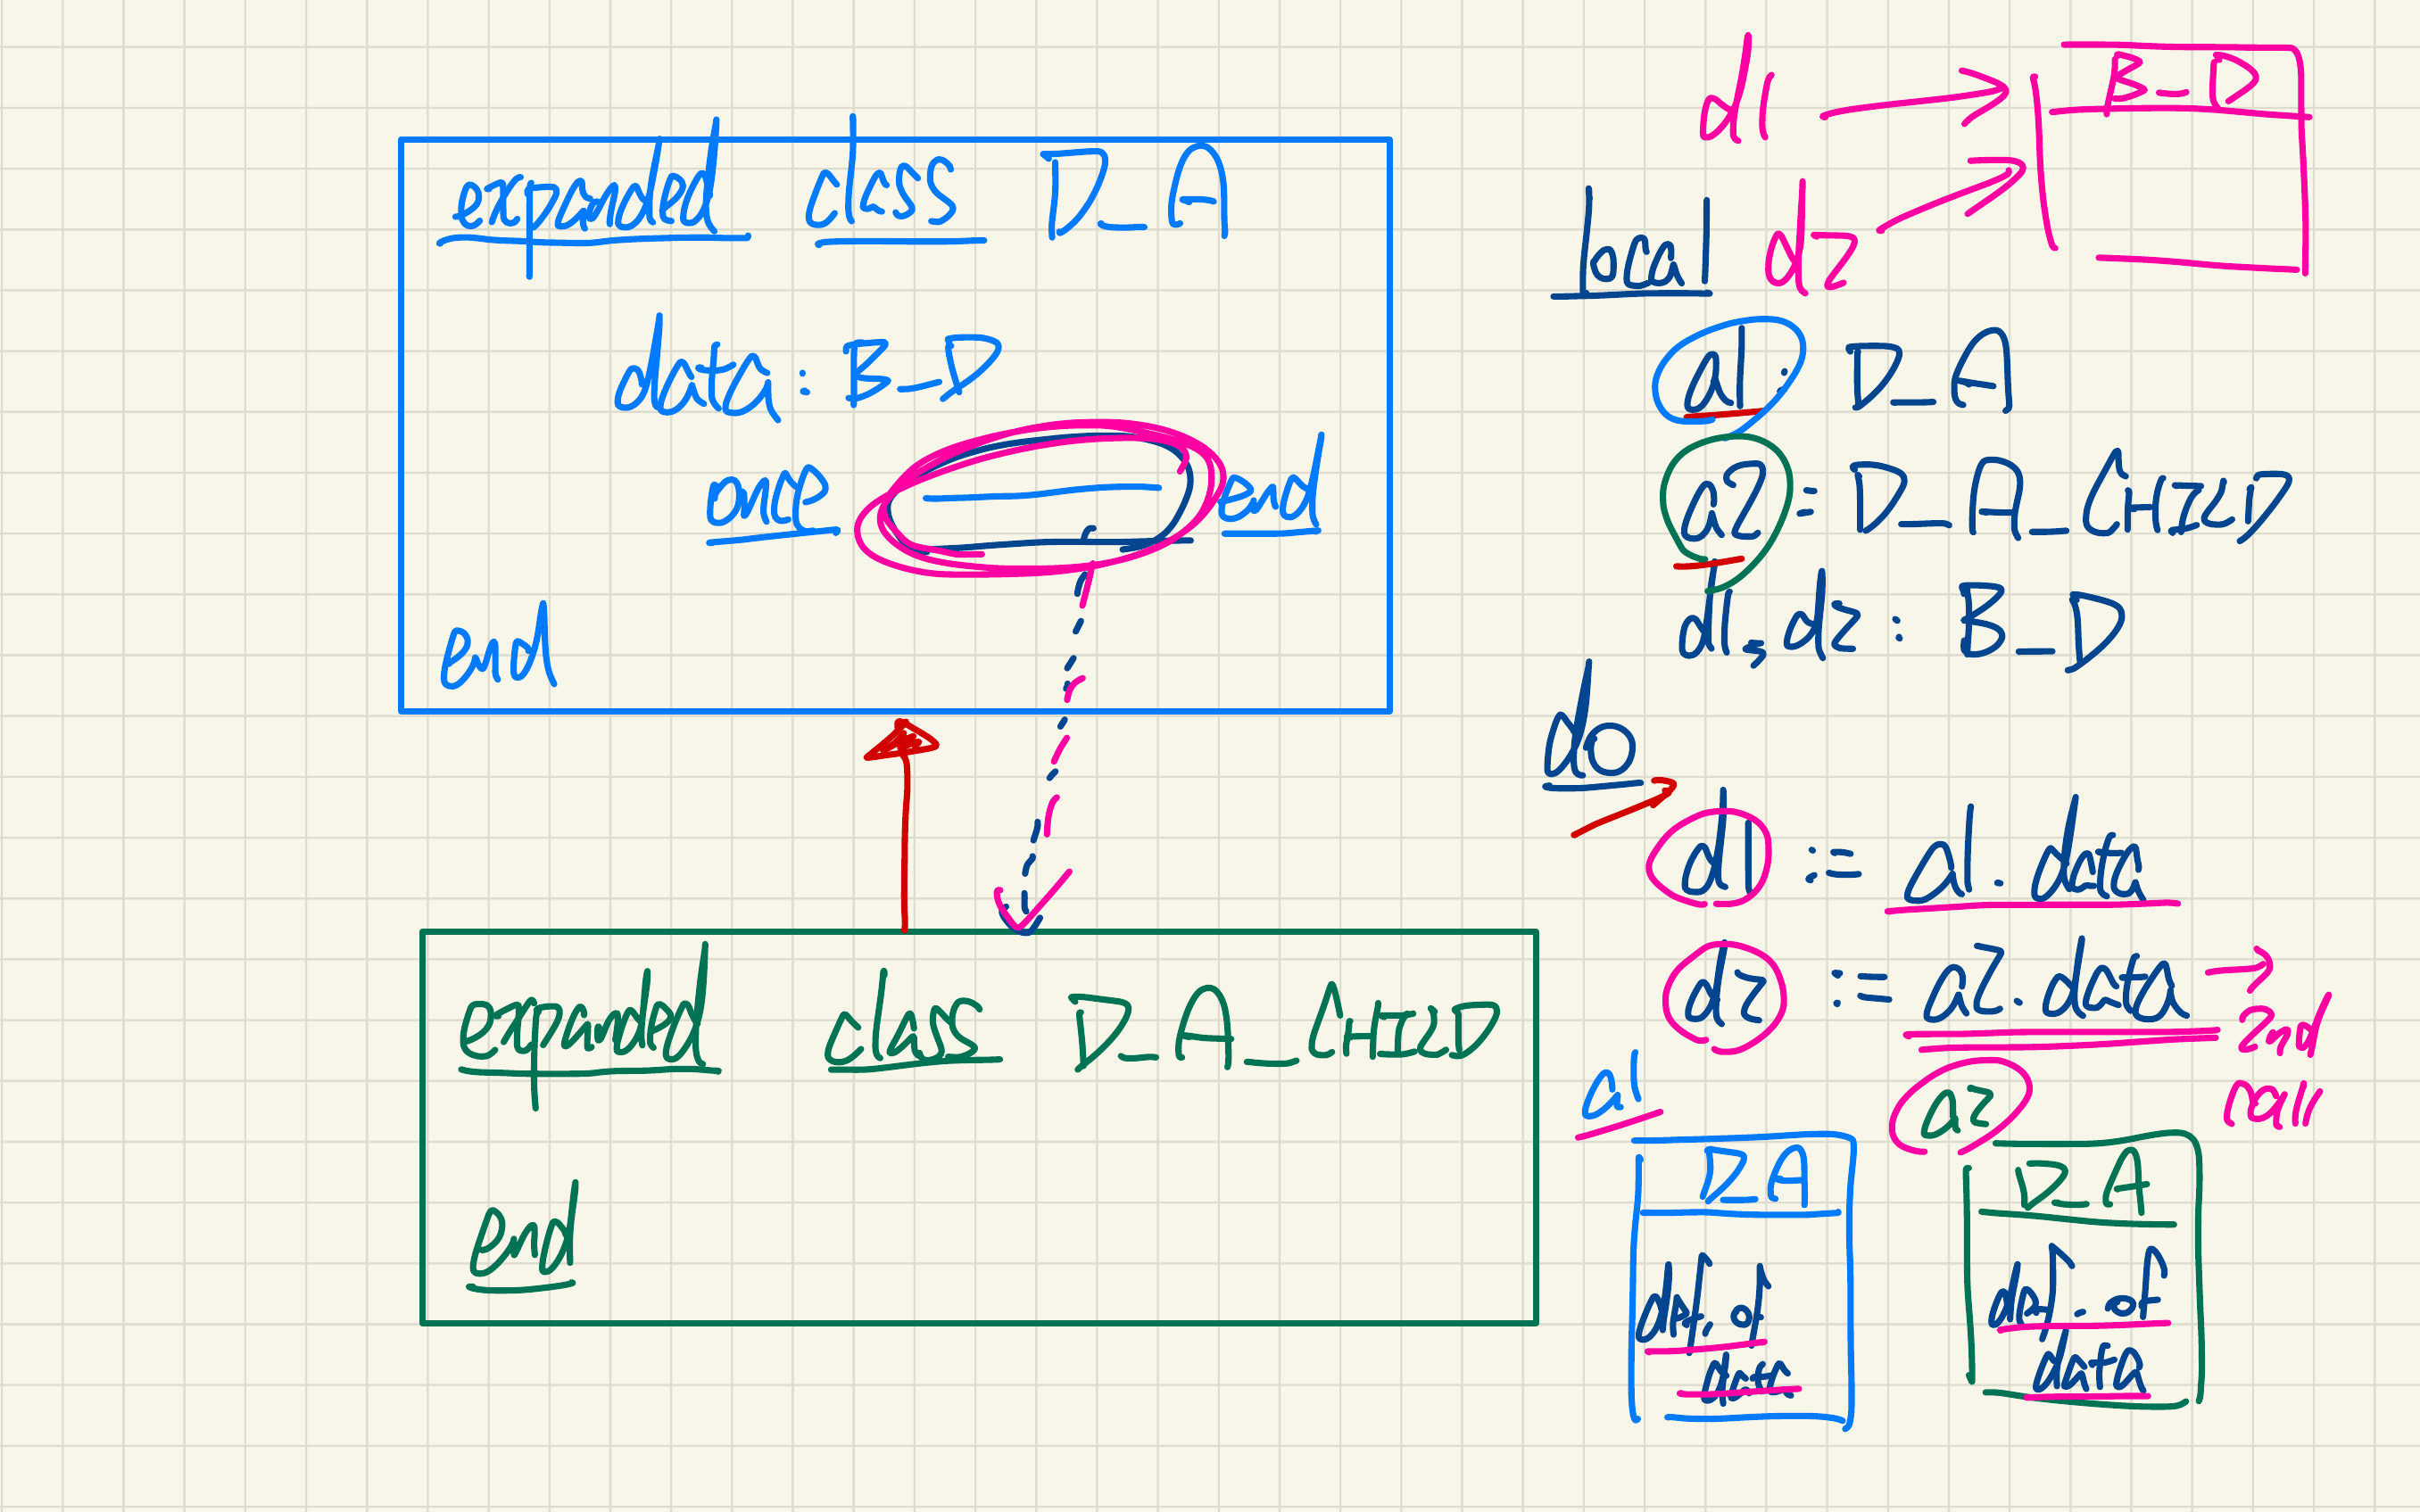 expanded class D_A
data : B_D
once end
end
expanded class D_A_CHILD
end
d1
d2
B_D
local
a1: D_A
a2: D_A_CHILD
d1, d2: B_D
do
d1 := a1.data
d2 := a2.data
2nd
call
a1
D_A
def. of
data
a2
D_A
def. of
data